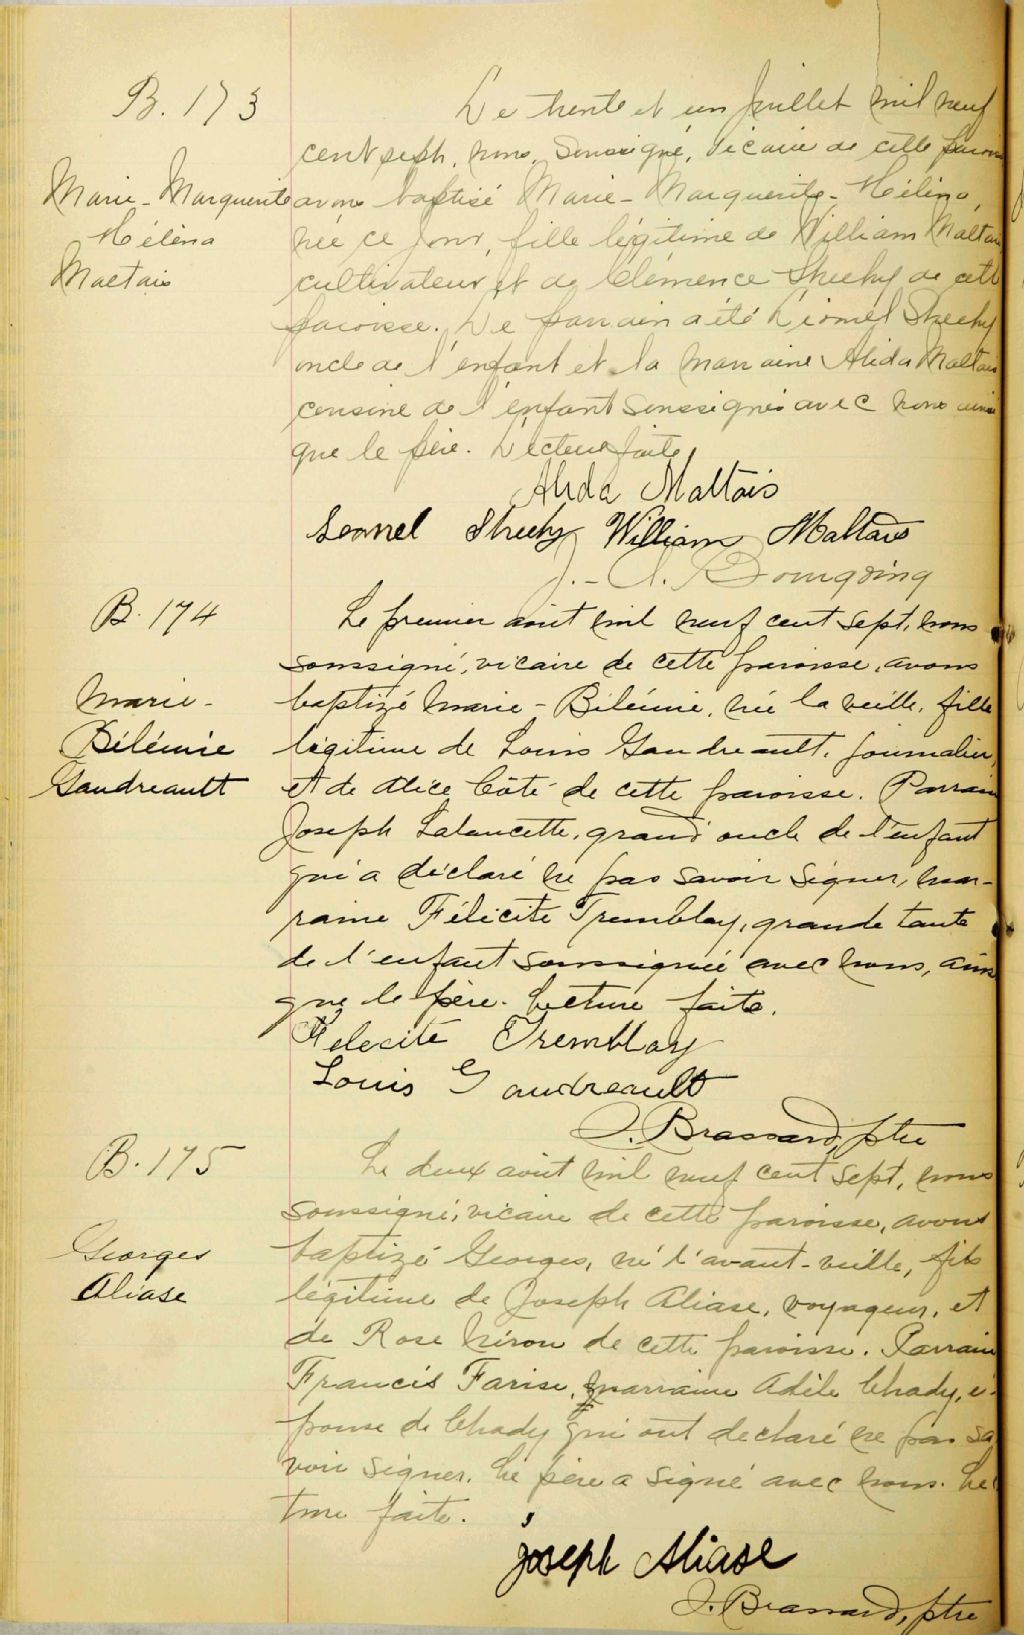 B. 173
Marie-Marguerite
Hélèna
Maltais
Le trente et un Juillet mil neuf
cent sept, nous, soussigné, vicaire de cette paroisse
avons baptisé Marie-Marguerite-Hélèna,
née ce jour, fille légitime de William Maltais
cultivateur et de Clémence Sheehy de cette
paroisse. Le parrain a été Lionel Sheehy
oncle de l'enfant et la marraine Alida Maltais
cousine de l'enfant soussignés avec nous ainsi
que le père. Lecture faite.
Alida Maltais
Leonel Sheehy William Maltais
J.-A. Bourgoing
B. 174
Marie-
Bilémie
Gaudreault
Le premier août mil neuf cent sept, nous
soussigné, vicaire de cette paroisse, avons
baptizé Marie-Bilémie, née la veille, fille
légitime de Louis Gaudreault, journalier,
et de Alice Côté de cette paroisse. Parrain
Joseph Lalancette, grand oncle de l'enfant
qui a déclaré ne pas savoir signer, mar-
raine Félicité Tremblay, grande tante
de l'enfant soussignée avec nous, ainsi
que le père. Lecture faite.
Félecité Tremblay
Louis Gaudreault
J. Brassard, ptre
B. 175
Georges
Aliase
Le deux août mil neuf cent sept, nous
soussigné, vicaire de cette paroisse, avons
baptizé Georges, né l'avant-veille, fils
légitime de Joseph Aliase, voyageur, et
de Rose de cette paroisse. Parrain
Francis Farise, marraine Adèle Chady, é-
pouse de Chady qui ont declaré ne pas sa
voir signer. Le père a signé avec nous. Lec
ture faite.
joseph Aliase
J. Brassard, ptre